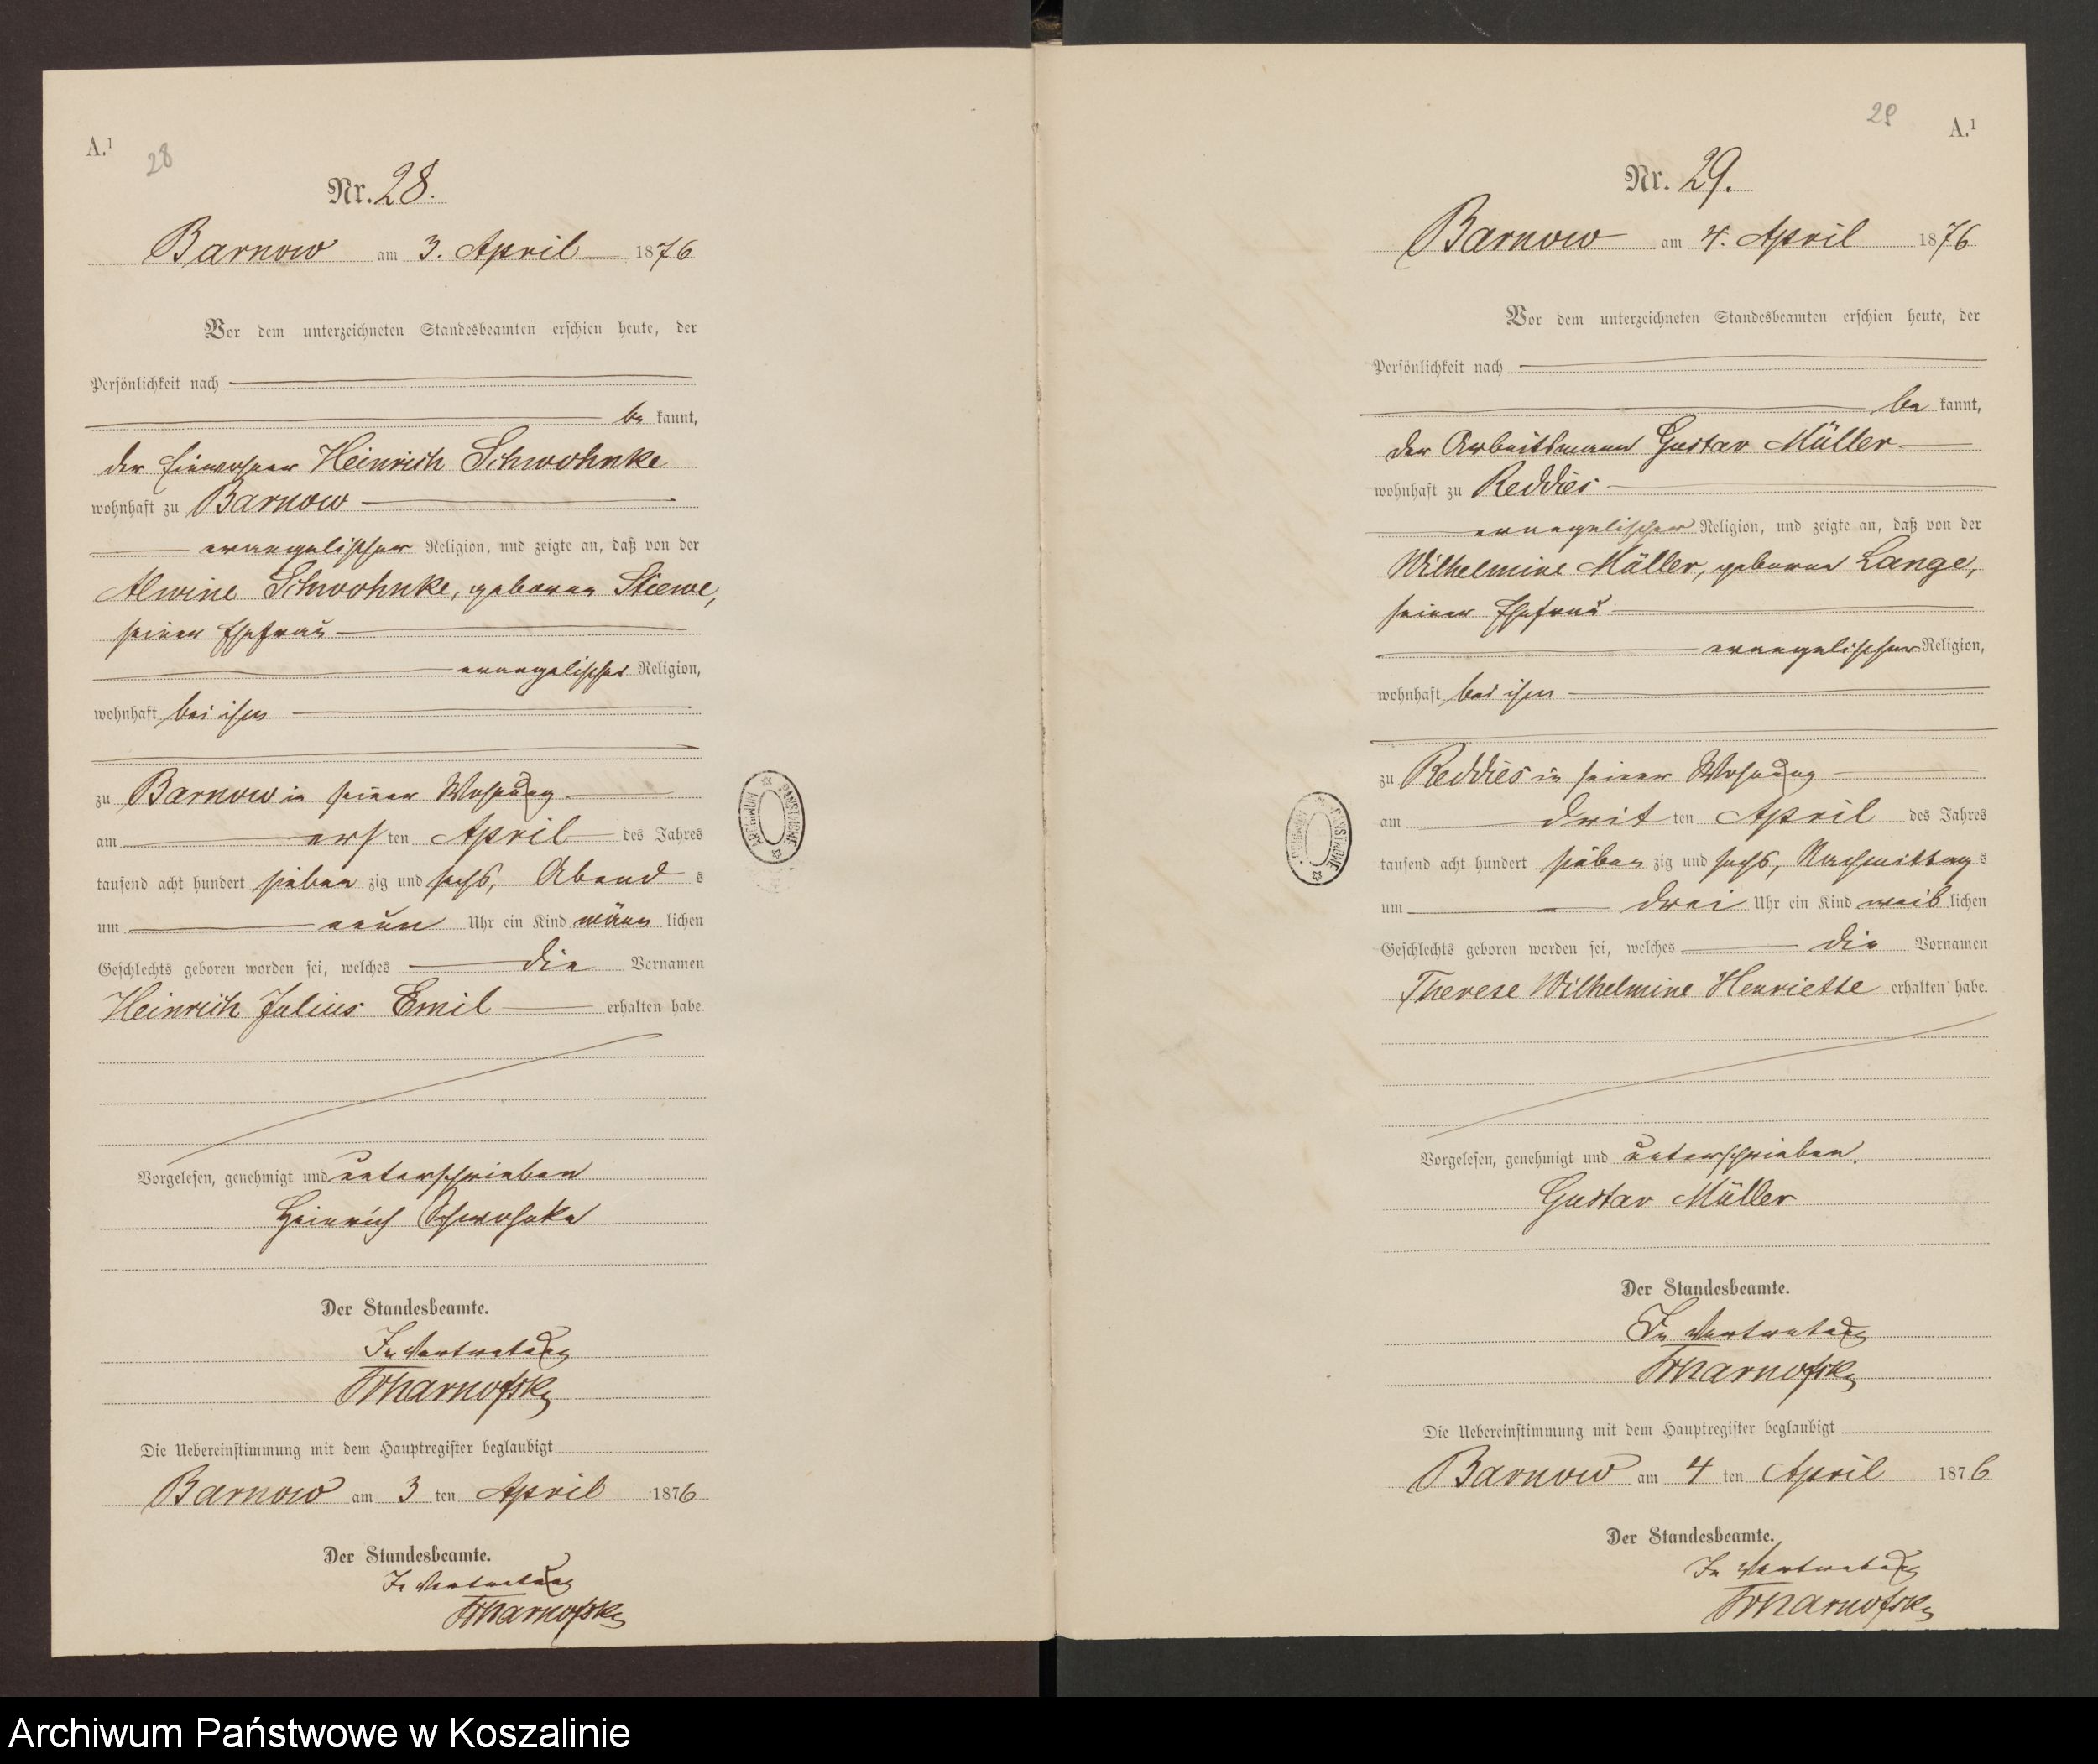 A.¹
28
Nr. 28.
Barnow am 3. April 1876
Vor dem unterzeichneten Standesbeamten erschien heute, der
Persönlichkeit nach
be kannt,
der Einwohner Heinrich Schwohnke
wohnhaft zu Barnow
evangelischer Religion, und zeigte an, daß von der
Alwine Schwohnke, geborne Stiewe,
seiner Ehefrau
evangelischer Religion,
wohnhaft bei ihm
zu Barnow in seiner Wohnung
am ers ten April des Jahres
tausend acht hundert sieben zig und sechs, Abend s
um neun Uhr ein Kind männ lichen
Geschlechts geboren worden sei, welches die Vornamen
Heinrich Julius Emil erhalten habe.
Vorgelesen, genehmigt und unterschrieben
Heinrich Schwohnke
Der Standesbeamte.
In Vertretung
Die Uebereinstimmung mit dem Hauptregister beglaubigt
Barnow am 3 ten April 1876
Der Standesbeamte.
In Vertretung
29
A.¹
Nr. 29.
Barnow am 4. April 1876
Vor dem unterzeichneten Standesbeamten erschien heute, der
Persönlichkeit nach
be kannt,
der Arbeitsmann Gustav Müller
wohnhaft zu Reddies
evangelischer Religion, und zeigte an, daß von der
Wilhelmine Müller, geborne Lange,
seiner Ehefrau
evangelischer Religion,
wohnhaft bei ihm
zu Reddies in seiner Wohnung
am drit ten April des Jahres
tausend acht hundert sieben zig und sechs, Nachmittag s
um drei Uhr ein Kind weib lichen
Geschlechts geboren worden sei, welches die Vornamen
Therese Wilhelmine Henriette erhalten habe.
Vorgelesen, genehmigt und unterschrieben.
Gustav Müller
Der Standesbeamte.
In Vertretung
Die Uebereinstimmung mit dem Hauptregister beglaubigt
Barnow am 4 ten April 1876
Der Standesbeamte.
In Vertretung
Archiwum Państwowe w Koszalinie